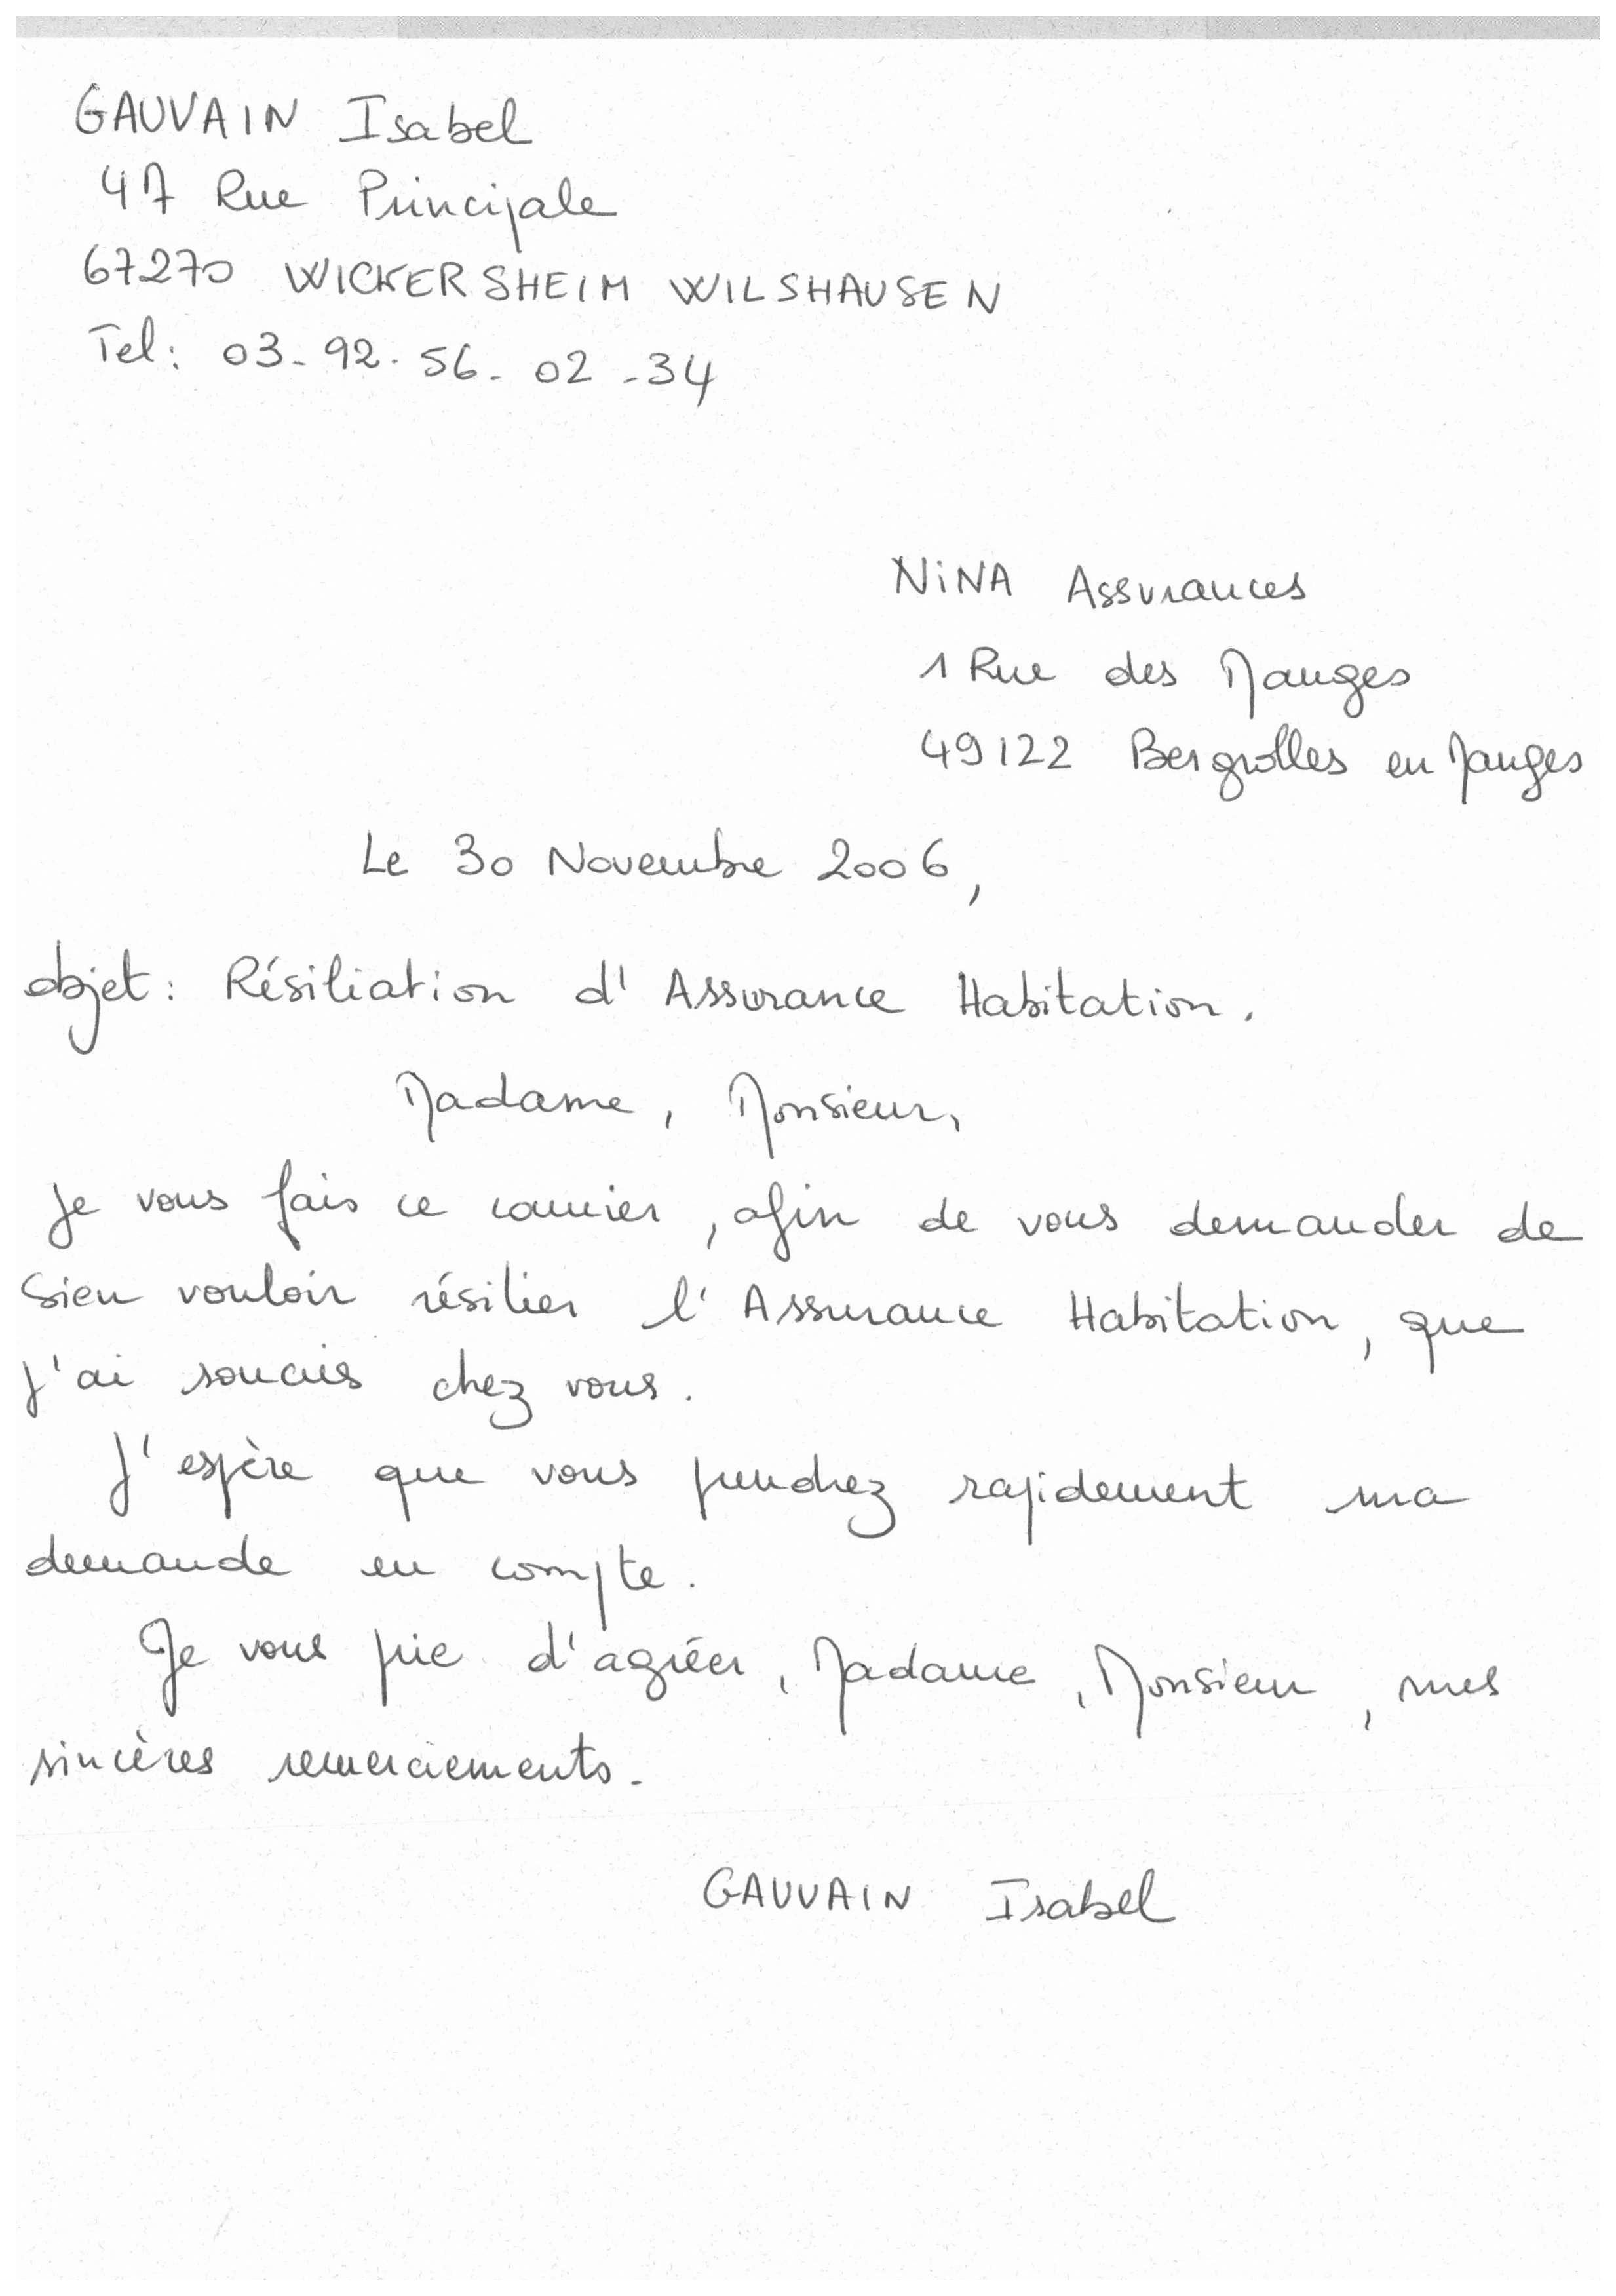 GAUVAIN Isabel
47 Rue Principale
67270 WICKERSHEIM WILSHAUSEN
Tel: 03-92.56-02-34
NiNA Assurances
1 Rue des Mauges
49122 Bergrolles en Mauges
Le 30 Novembre 2006,
objet: Résiliation d'Assurance Habitation.
Madame, Monsieur,
Je vous fais ce courrier, afin de vous demander de
bien vouloir résilier l'Assurance Habitation, que
j'ai souscris chez vous.
J'espère que vous prendrez rapidement ma
demande en compte.
Je vous prie d'agréer, Madame, Monsieur, mes
sincères remerciements.
GAUVAIN Isabel